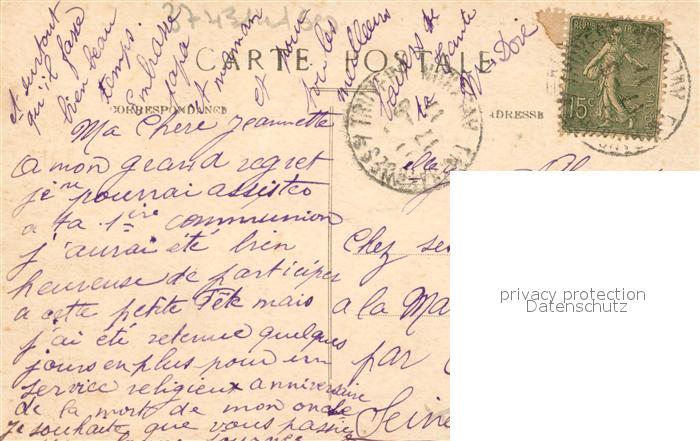 CARTE POSTALE
CORRESPONDANCE
ADRESSE
15c
Ma Chère Jeannette
a mon grand regret
je ne pourrai assister
a ta 1ière communion
j'aurai été bien
heureuse de participer
a cette petite Fête mais
j'ai été retenue quelques
jours en plus pour un
service religieux anniversaire
de la mort de mon oncle
je souhaite que vous passiez
et surtout
qu'il fasse
bien beau
temps.
Embrasse
papa
et maman
et pour
tous les
meilleurs
baisers de
ta
Chez ses
a la Ma
par
Seine
privacy protection
Datenschutz